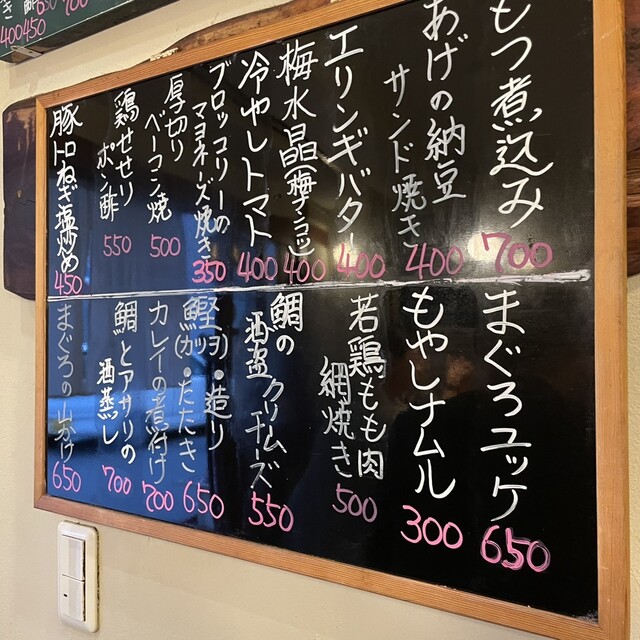 もつ煮込み
700
あげの納豆
サンド焼き
400
エリンギバター
400
梅水晶(梅ナンコツ)
400
冷やしトマト
400
ブロッコリーの
マヨネーズ焼き
350
厚切り
ベーコン焼
500
鶏せせり
ポン酢
550
豚トロねぎ塩炒め
450
まぐろユッケ
650
もやしナムル
300
若鶏もも肉
網焼き
500
鯛の
酒盗クリームチーズ
550
鰹(カツヲ)・造り
鰹(カツヲ)・たたき
650
カレイの煮付け
700
鯛とアサリの
酒蒸し
700
まぐろの山かけ
650
400 450